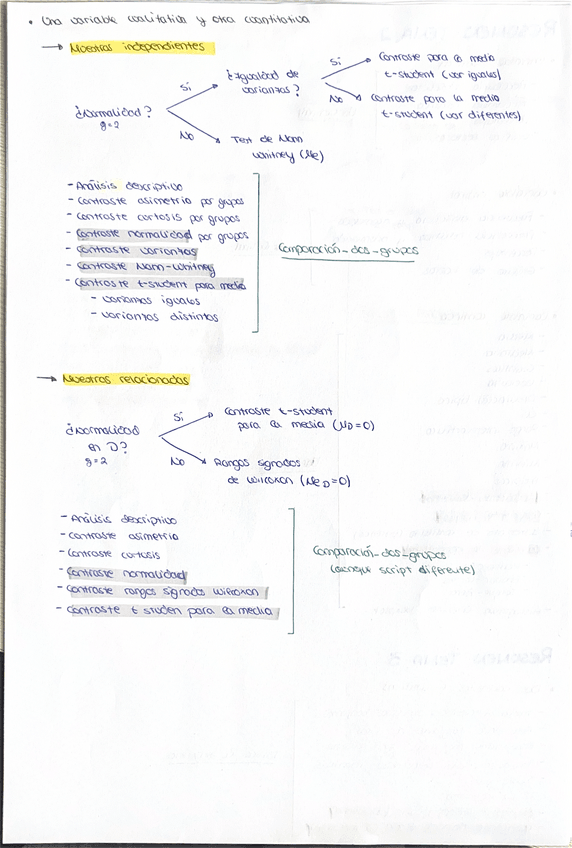 • Una variable cualitativa y otra cuantitativa
→ Muestras independientes
¿Normalidad?
g=2
Sí
¿Igualdad de
varianzas?
Sí
Contraste para la media
t-student (var iguales)
No
Contraste para la media
t-student (var diferentes)
No
Test de Mann
Whitney (Me)
- Análisis descriptivo
- Contraste asimetria por grupos
- Contraste curtosis por grupos
- Contraste normalidad por grupos
- Contraste varianzas
- Contraste Mann-Whitney
- Contraste t-student para media
- varianzas iguales
- varianzas distintas
Comparación-dos-grupos
→ Muestras relacionadas
¿Normalidad
en D?
g=2
Sí
Contraste t-student
para la media (μD=0)
No
Rangos signados
de Wilcoxon (MeD=0)
- Análisis descriptivo
- Contraste asimetria
- Contraste curtosis
- Contraste normalidad
- Contraste rangos signados Wilcoxon
- Contraste t studen para la media
Comparación-dos-grupos
(aunque script diferente)
RESUMEN TEMA 3.